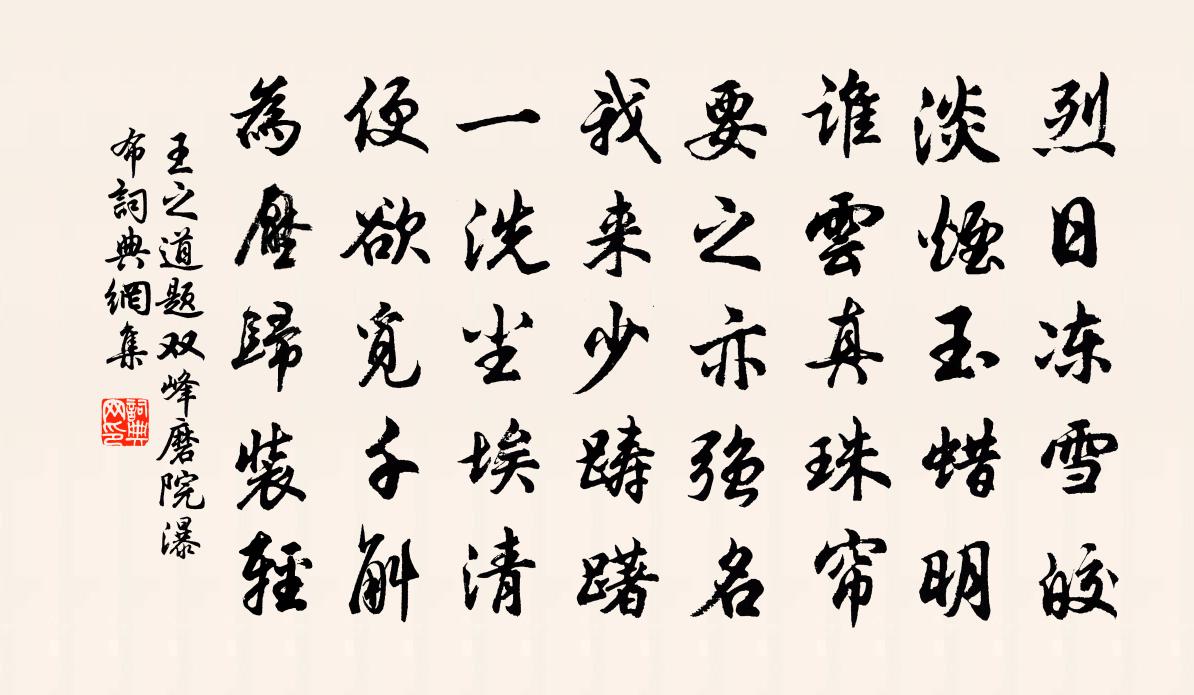 烈日冻雪皎
淡煙玉蜡明
谁雲真珠帘
要之亦强名
我来少踌躇
一洗尘埃清
便欲觅千斛
為壓歸裝輕
王之道题双峰磨院瀑
布詞典網集
詞典
网印